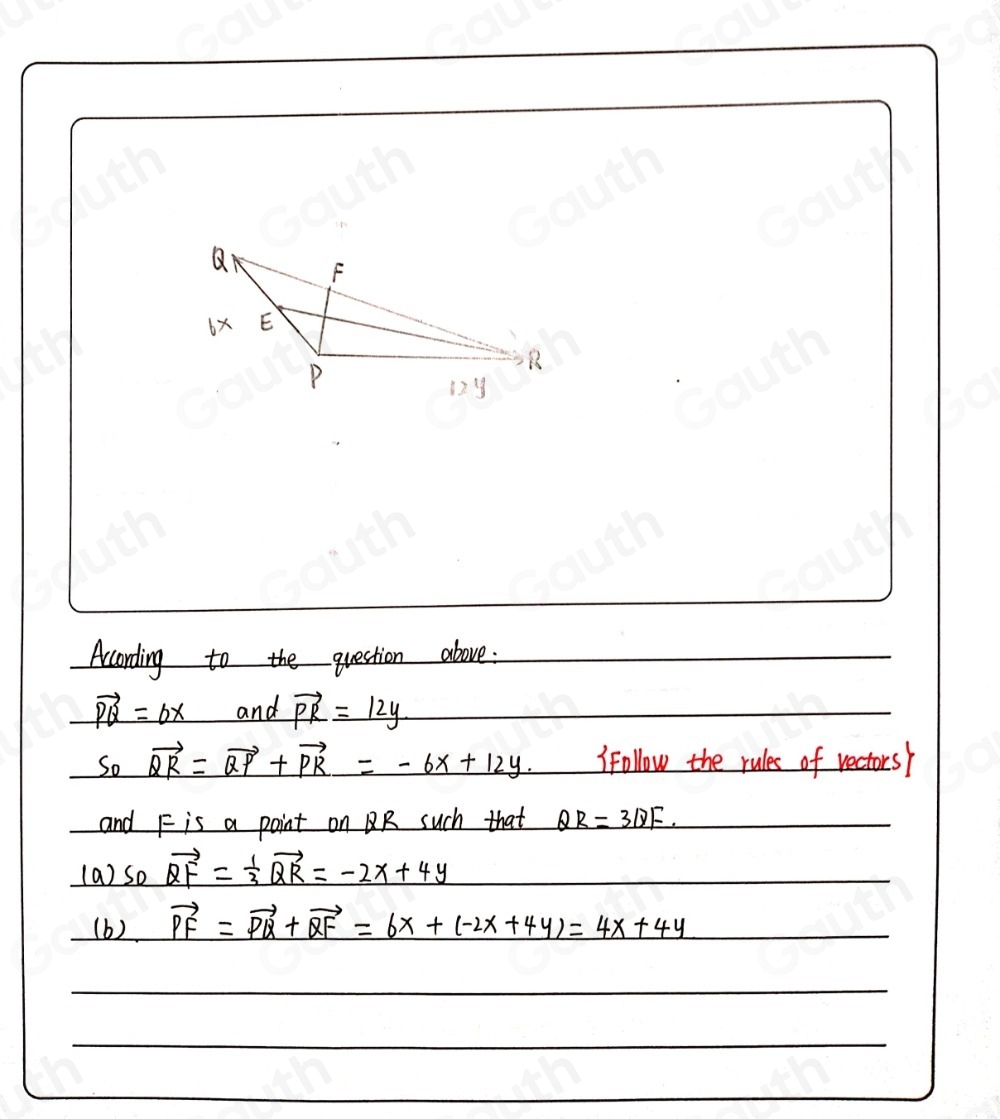 Q
F
6x E
P
R
12y
According to the question above:
PQ⃗ = 6x and PR⃗ = 12y.
So QR⃗ = QP⃗ + PR⃗ = - 6x + 12y. {Follow the rules of vectors}
and F is a point on QR such that QR = 3QF.
(a) So QF⃗ = 1/3 QR⃗ = -2x + 4y
(b) PF⃗ = PQ⃗ + QF⃗ = 6x + (-2x + 4y) = 4x + 4y
Gauth